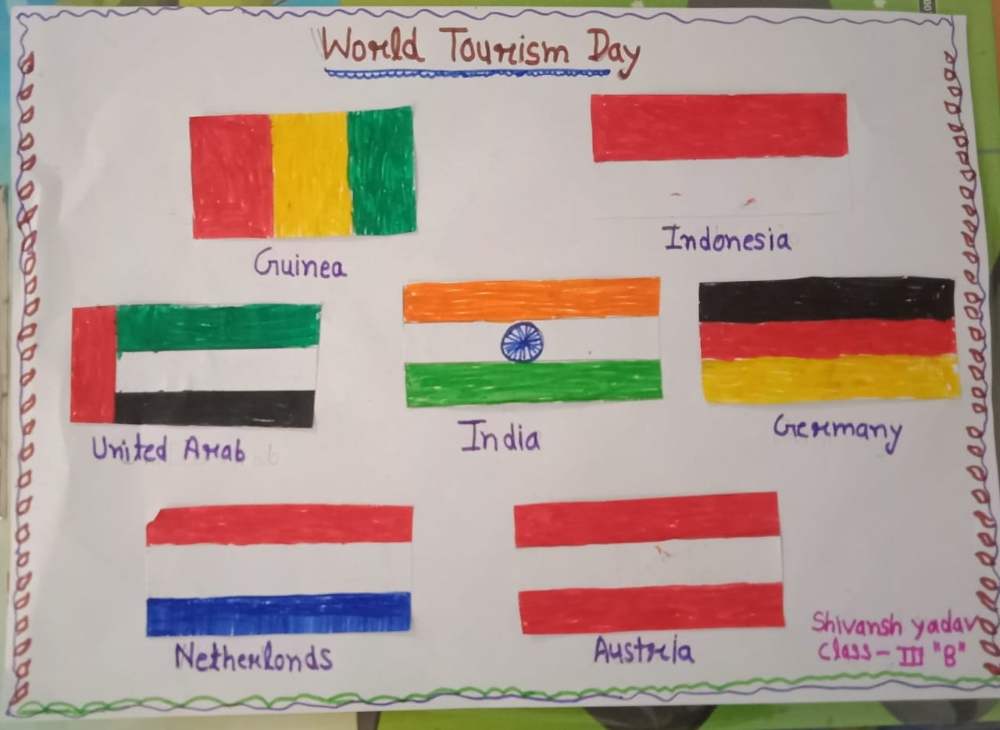 World Tourism Day
Guinea
Indonesia
United Arab
India
Germany
Netherlonds
Austria
Shivansh yadav
Class - III "B"